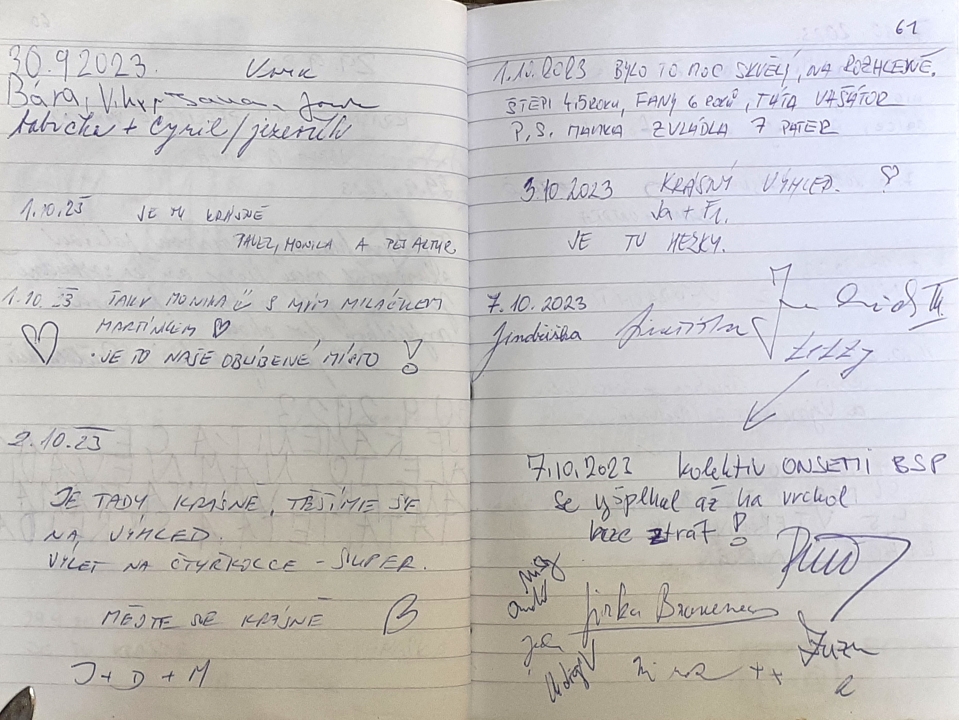 30.9 2023.
Bára,
babička + Cyril / jezevčík
1.10.23 JE TU KRÁSNĚ
PAVEL, MONIKA A PES ARTUR
1.10 23 TAKY MONIKA S MÝM MILÁČKEM
MARTÍNKEM ♡
JE TO NAŠE OBLÍBENÉ MÍSTO !
2.10.23
JE TADY KRÁSNĚ, TĚŠÍME SE
NA VÝHLED.
VÝLET NA ČTYŘKOLCE - SUPER.
MĚJTE SE KRÁSNĚ
J + D + M
61
1.10.2023 BYLO TO MOC SKVĚLÝ, NA ROZHLEDNĚ.
ŠTĚPI 4,5 ROKU, FANY 6 ROKŮ, TÁTA VAŠÁTOR
P.S. MAMKA ZVLÁDLA 7 PATER
3.10 2023 KRÁSNÝ VÝHLED. ♡
JE TU HEZKY.
7.10.2023
Jindřiška
7.10.2023 kolektiv ONSEMI BSP
se vyšplhal až na vrchol
beze ztrát !
Jirka
Zuzu